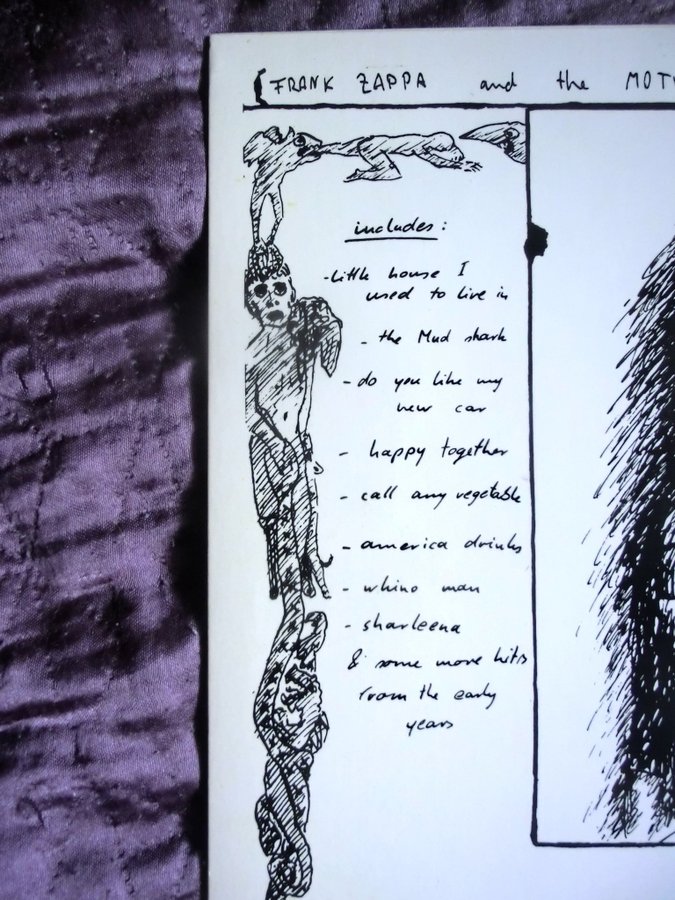 FRANK ZAPPA and the MOTH
includes:
-little house I
used to live in
- the Mud shark
- do you like my
new car
- happy together
- call any vegetable
- america drinks
- whino man
- sharleena
& some more hits
from the early
years